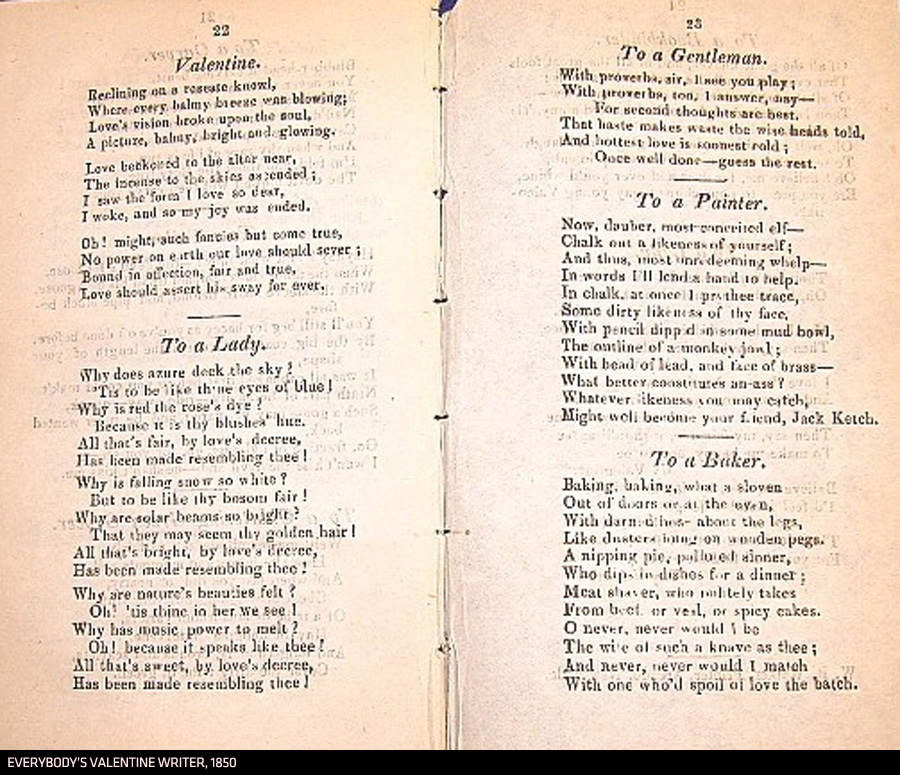 22
Valentine.
Reclining on a roseate knowl,
Where every balmy breeze was blowing;
Love's vision broke upon the soul,
A picture, balmy, bright and glowing.
Love beckoned to the altar near,
The incense to the skies ascended;
I saw the form I love so dear,
I woke, and so my joy was ended.
Oh! might, such fancies but come true,
No power on earth our love should sever;
Bound in affection, fair and true,
Love should assert his sway for ever.
To a Lady.
Why does azure deck the sky?
'Tis to be like thine eyes of blue!
Why is red the rose's dye?
Because it is thy blushes' hue.
All that's fair, by love's decree,
Has been made resembling thee!
Why is falling snow so white?
But to be like thy bosom fair!
Why are solar beams so bright?
That they may seem thy golden hair!
All that's bright, by love's decree,
Has been made resembling thee!
Why are nature's beauties felt?
Oh! 'tis thine in her we see!
Why has music power to melt?
Oh! because it speaks like thee!
All that's sweet, by love's decree,
Has been made resembling thee!
23
To a Gentleman.
With proverbs, sir, I see you play;
With proverbs, too, I answer, nay—
For second thoughts are best.
That haste makes waste the wise heads told,
And hottest love is soonest cold;
Once well done—guess the rest.
To a Painter.
Now, dauber, most conceited elf—
Chalk out a likeness of yourself;
And thus, most unredeeming whelp—
In words I'll lend a hand to help.
In chalk, at once I prythee trace,
Some dirty likeness of thy face,
With pencil dipp'd in some mud bowl,
The outline of a monkey jowl;
With head of lead, and face of brass—
What better constitutes an ass?
Whatever likeness you may catch,
Might well become your friend, Jack Ketch.
To a Baker.
Baking, baking, what a sloven
Out of doors or at the oven,
With about the legs,
Like dusters hung on wooden pegs.
A nipping pie, polluted sinner,
Who dips in dishes for a dinner;
Meat shaver, who politely takes
From beef, or veal, or spicy cakes.
O never, never would I be
The wife of such a knave as thee;
And never, never would I match
With one who'd spoil of love the batch.
EVERYBODY'S VALENTINE WRITER, 1850